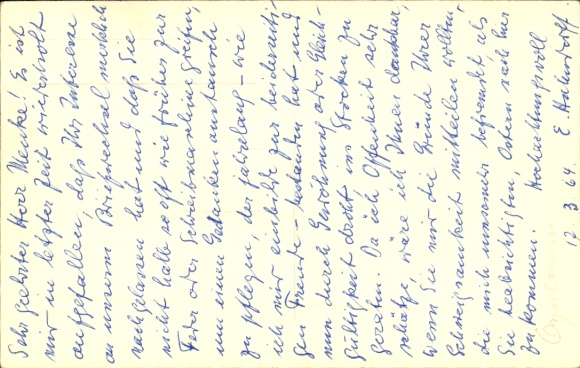 Sehr geehrter Herr Menke! Es ist
mir in letzter Zeit wiederholt
aufgefallen, daß Ihr Interesse
an unserm Briefwechsel merklich
nachgelassen hat und daß Sie
nicht halb so oft wie früher zur
Feder oder Schreibmaschine greifen,
um einen Gedankenaustausch
zu pflegen, der jahrelang – wie
ich mir einbilde zur beiderseiti-
gen Freude – bestanden hat und
nun durch Gewöhnung oder Gleich-
gültigkeit droht ins Stocken zu
geraten. Da ich Offenheit sehr
schätze, wäre ich Ihnen dankbar,
wenn Sie mir die Gründe Ihrer
Schweigsamkeit mitteilen wollen,
die mich umsomehr befremdet als
Sie beabsichtigten, Ostern nach hier
zu kommen. Hochachtungsvoll
E.
12 3 64.